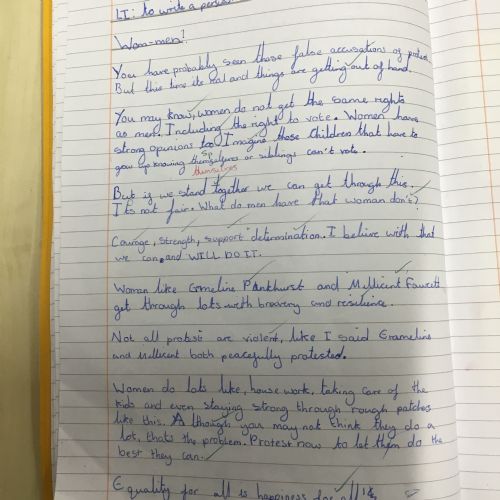 LI: to write a persu
Wom=men!
You have probably seen those false accusations of protest.
But this time its real and things are getting out of hand.
You may know, women do not get the same rights
as men. Including the right to vote. Women have
strong opinions too! Imagine those children that have to
sp
grow up knowing themselfves or siblings can't vote.
themselves
But if we stand together we can get through this.
It's not fair. What do men have that woman don't?
Courage, strength, support determination. I believe with that
we can, and WILL DO IT.
Women like Emeline Pankhurst and Millicent Fawcett
get through lots with bravery and resilience.
Not all protests are violent, like I said Emmeline
and Millicent both peacefully protested.
Women do lots like, house work, taking care of the
kids and even staying strong through rough patches
like this. Although you may not think they do a
lot, thats the problem. Protest now to let them do the
best they can.
Equality for all is happiness for all!